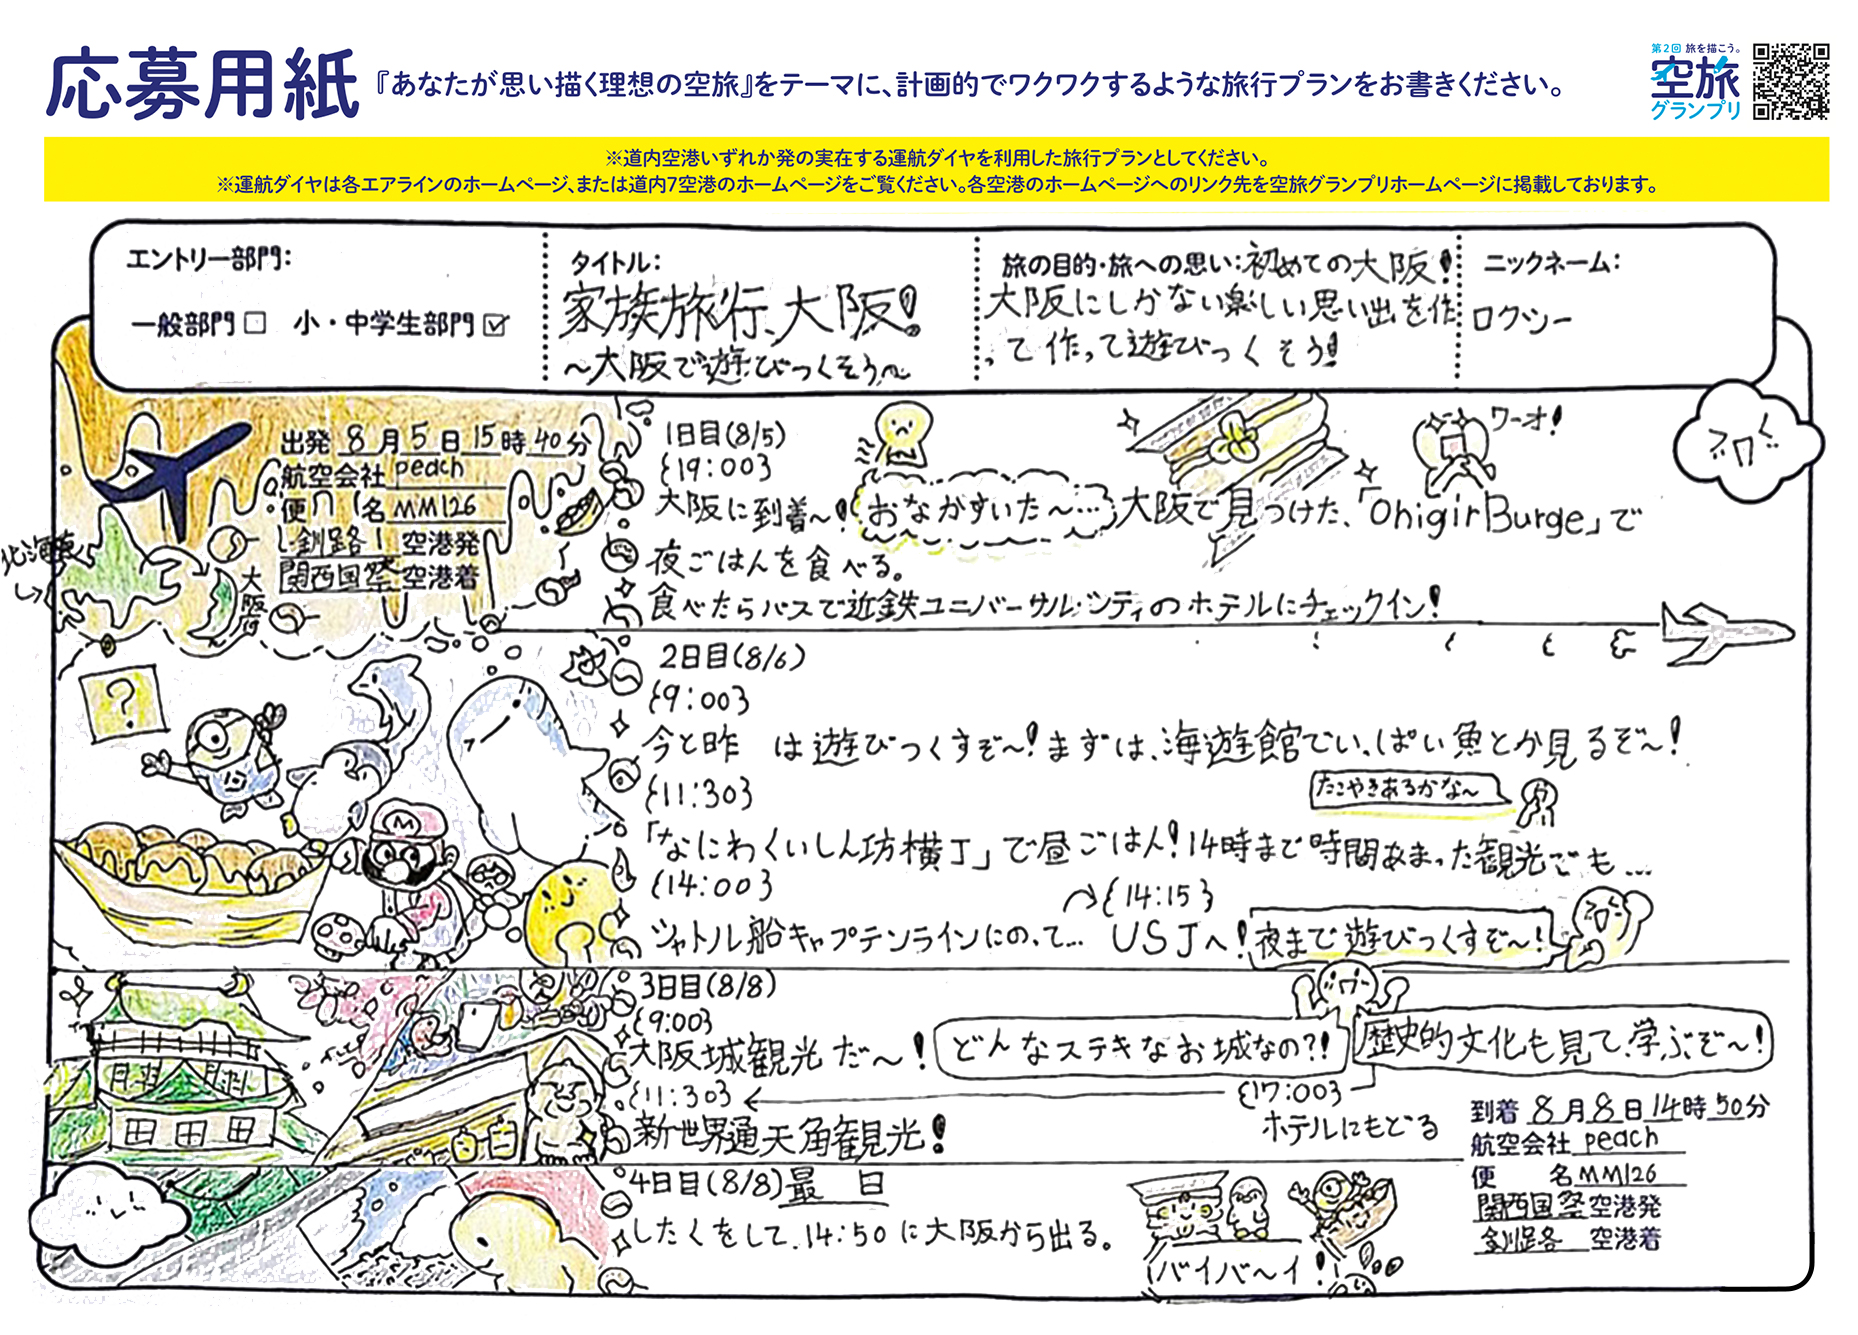 応募用紙 『あなたが思い描く理想の空旅』をテーマに、計画的でワクワクするような旅行プランをお書きください。
第2回 旅を描こう。
空旅
グランプリ
※道内空港いずれか発の実在する運航ダイヤを利用した旅行プランとしてください。
※運航ダイヤは各エアラインのホームページ、または道内7空港のホームページをご覧ください。各空港のホームページへのリンク先を空旅グランプリホームページに掲載しております。
エントリー部門:
一般部門□ 小・中学生部門☑
タイトル:
家族旅行、大阪!
~大阪で遊びつくそう~
旅の目的・旅への思い:初めての大阪!
大阪にしかない楽しい思い出を作
って作って遊びつくそう!
ニックネーム:
ロクシー
出発 8月5日15時40分
航空会社 peach
便名 MM126
釧路 空港発
関西国祭 空港着
北海道
大阪府
1日目(8/5)
{19:00}
大阪に到着~! おなかすいた~… 大阪で見つけた、「OhigirBurge」で
ワーオ!
夜ごはんを食べる。
食べたらバスで近鉄ユニバーサル・シティのホテルにチェックイン!
2日目(8/6)
{9:00}
今と昨 は遊びつくすぞ~!まずは、海遊館でいっぱい魚とか見るぞ~!
{11:30}
たこやきあるかな~
「なにわくいしん坊横丁」で昼ごはん!14時まで時間あまった観光でも…
{14:00}
{14:15}
シャトル船キャプテンラインにのって… USJへ! 夜まで遊びつくすぞ~!
?
M
3日目(8/8)
{9:00}
大阪城観光だ~! どんなステキなお城なの?! 歴史的文化も見て、学ぶぞ~!
{11:30}
{17:00}
新世界通天角観光!
ホテルにもどる
4日目(8/8)最 日
したくをして、14:50に大阪から出る。
バイバ~イ!
到着 8月8日14時50分
航空会社 peach
便 名 MM126
関西国祭 空港発
釧路 空港着